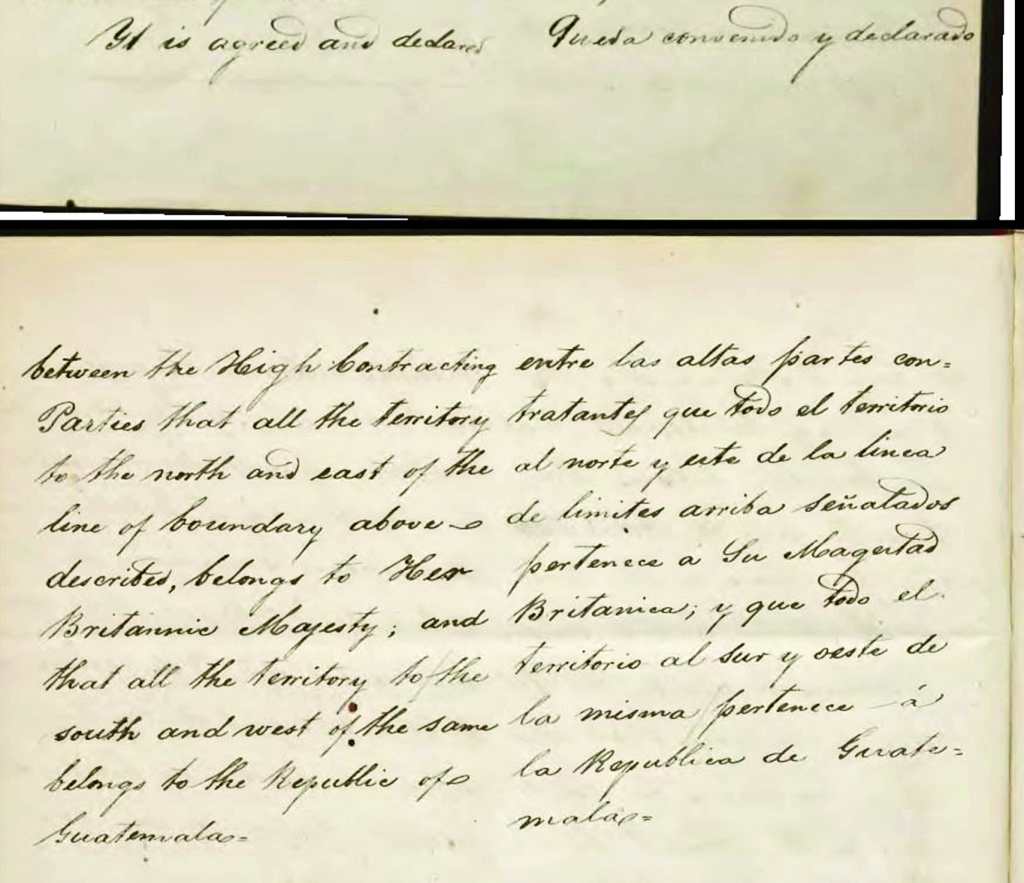 It is agreed and declared
between the High Contracting
Parties that all the territory
to the north and east of the
line of boundary above
described, belongs to Her
Britannic Majesty; and
that all the territory to the
south and west of the same
belongs to the Republic of
Guatemala=
Queda convenido y declarado
entre las altas partes con=
tratantes que todo el territorio
al norte y este de la linea
de limites arriba señalados
pertenece a Su Magestad
Britanica; y que todo el
territorio al sur y oeste de
la misma pertenece á
la Republica de Guate=
mala=